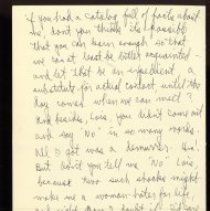 If you had a catalog full of facts about
me, don't you think it's possible
that you can learn enough so that
we can at least be better acquainted
and let that be an expedient a
substitute for actual contact until the
day comes when we can meet?
And besides, Lois you didn't come out
and say 'No' in so many words.
All I got was a demurrer.
But don't you tell me 'No' Lois,
because two such shocks might
make me a woman-hater for life,